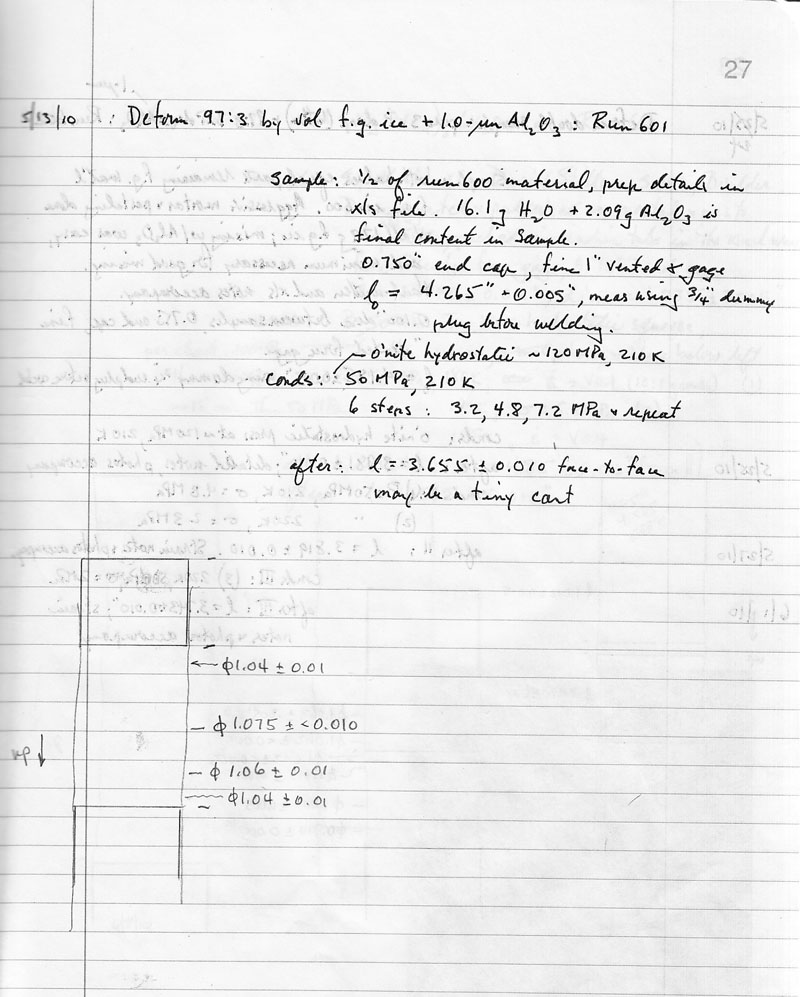 27
5/13/10 : Deform 97:3 by vol f.g. ice + 1.0-µm Al2O3 : Run 601
Sample: 1/2 of run 600 material, prep details in
xls file. 16.1 g H2O + 2.09 g Al2O3 is
final content in sample.
0.750" end cap, fine 1" vented & gage
l0 = 4.265" ± 0.005", meas using 3/4" dummy
plug before welding.
o'nite hydrostatic ~120 MPa, 210 K
conds: 50 MPa, 210 K
6 steps: 3.2, 4.8, 7.2 MPa & repeat
after: l = 3.655 ± 0.010 face-to-face
may be a tiny cant
← ϕ 1.04 ± 0.01
– ϕ 1.075 ± <0.010
up ↓
– ϕ 1.06 ± 0.01
ϕ 1.04 ± 0.01